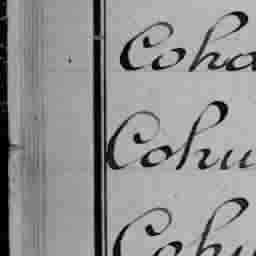 Coha
Cohu
Cohu